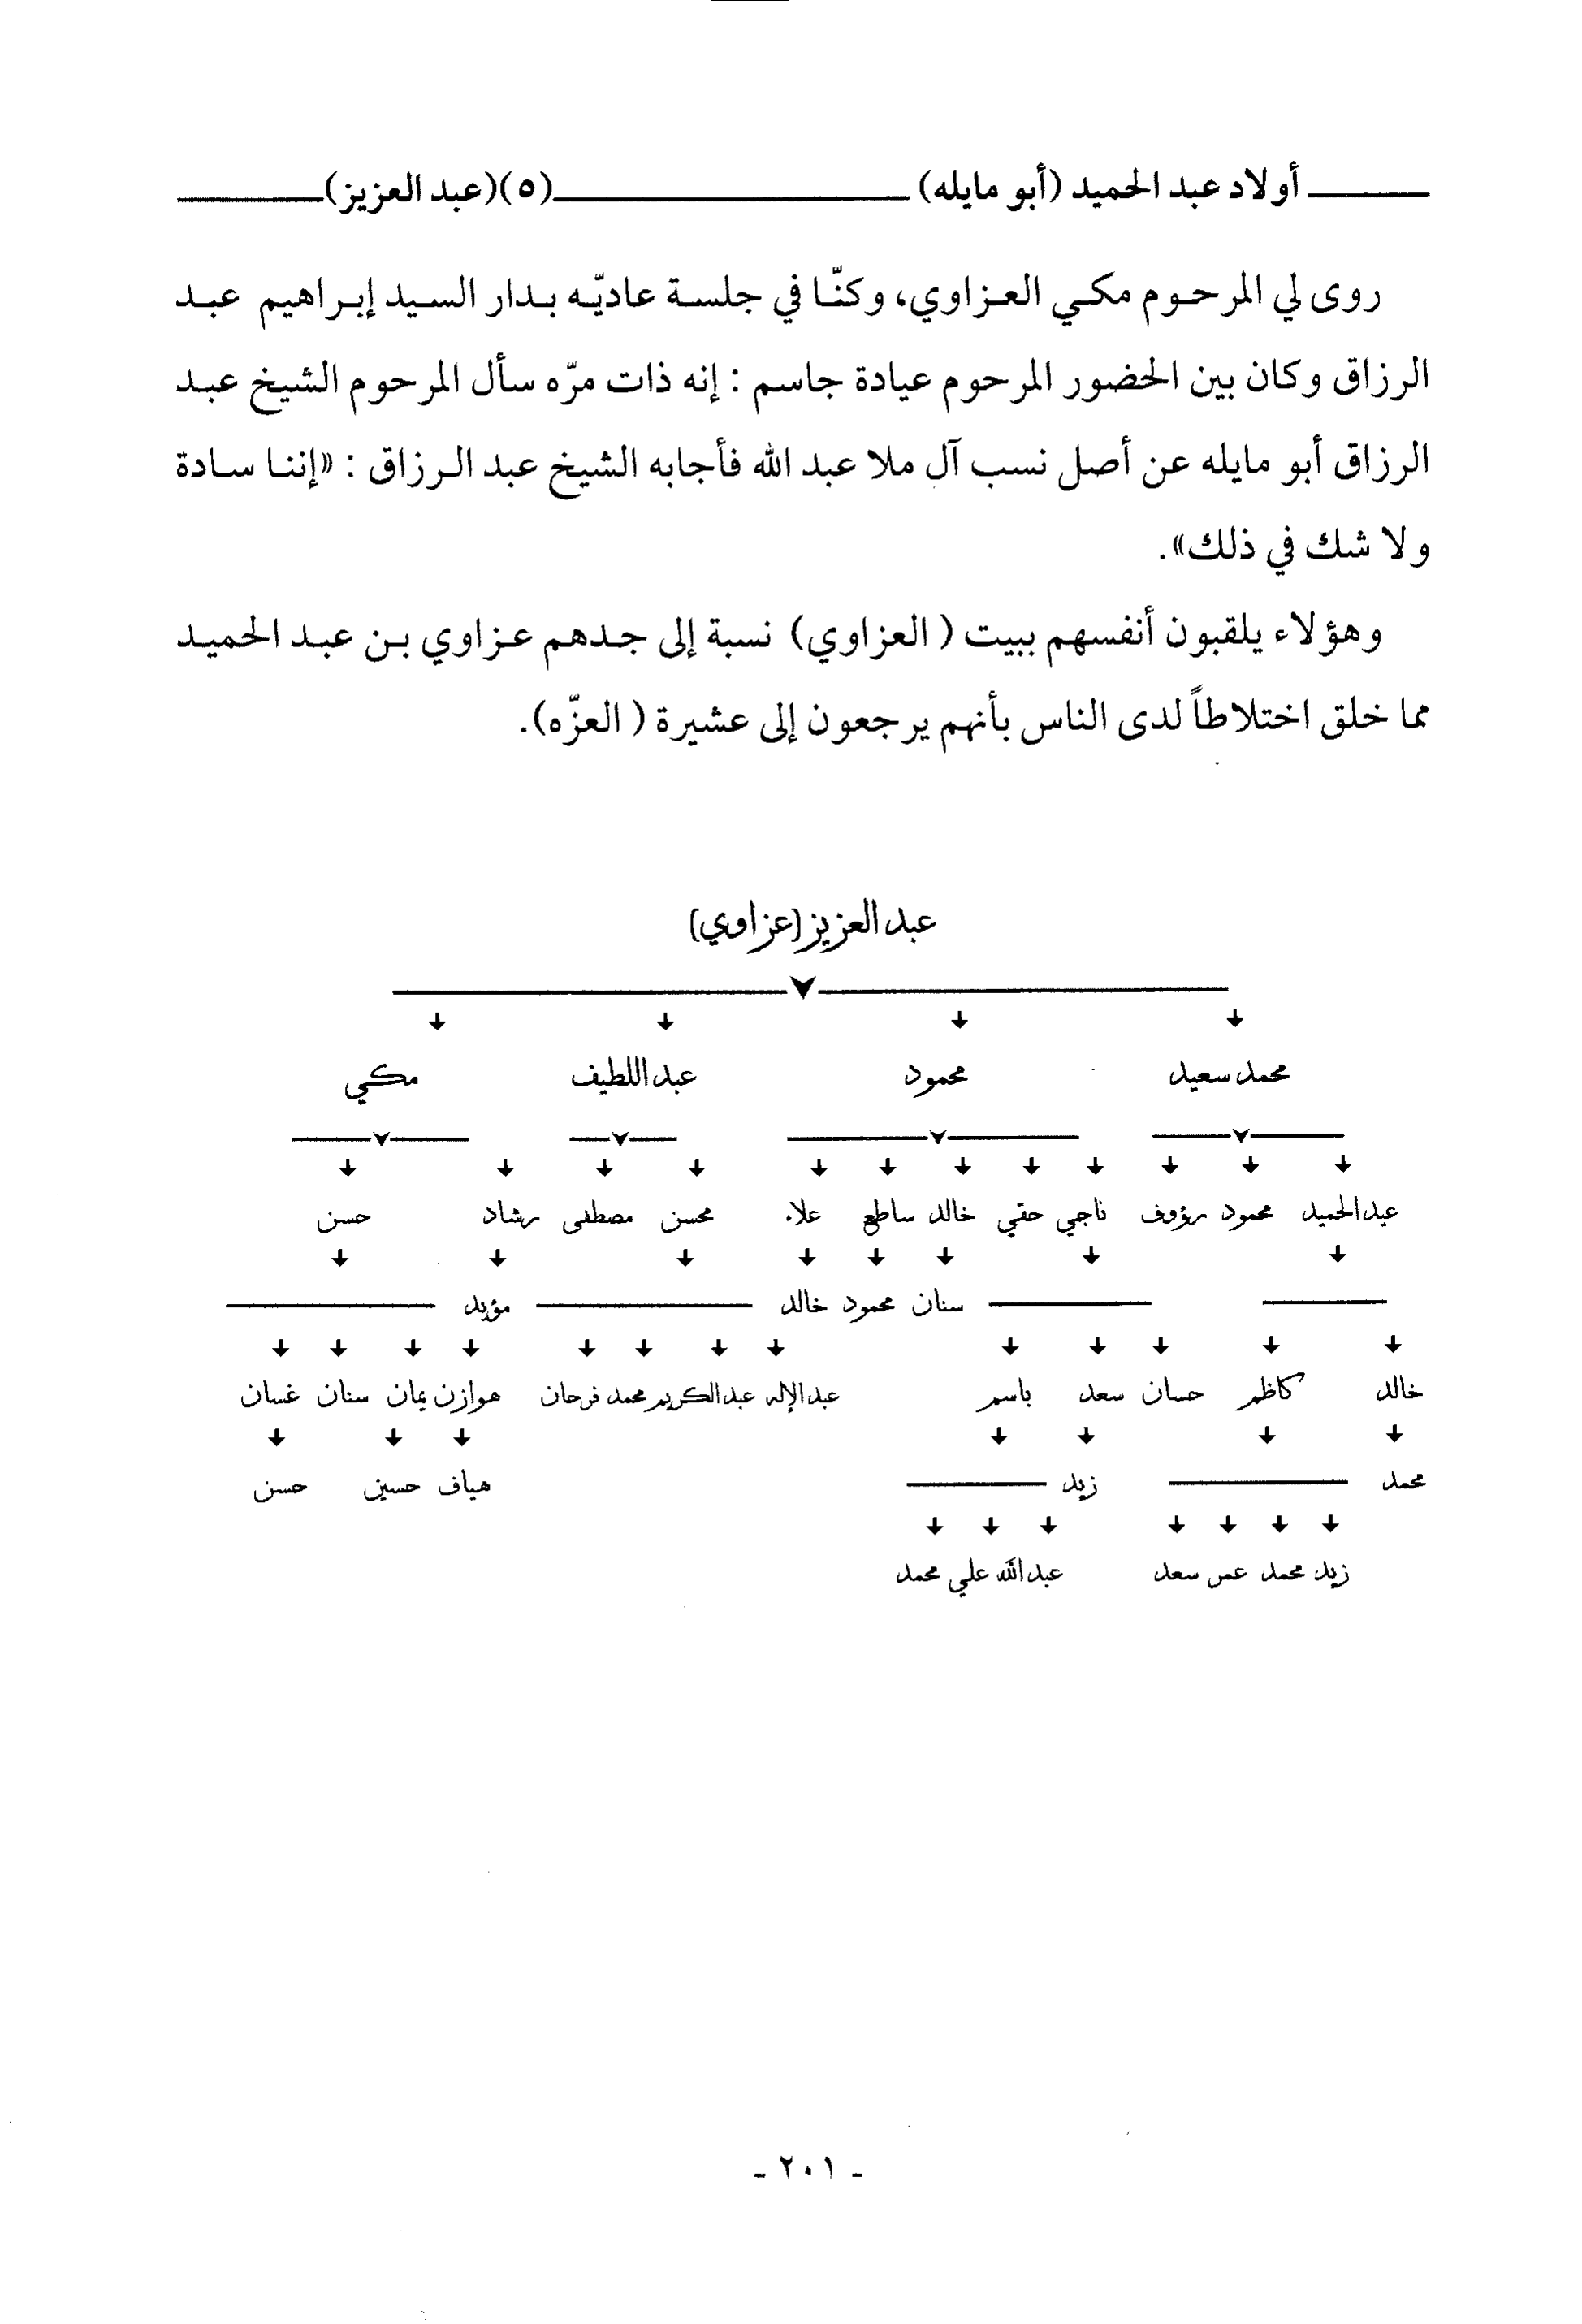 أولاد عبد الحميد (أبو مايله) (٥)(عبد العزيز)
روى لي المرحوم مكي العزاوي، وكنّا في جلسة عاديّه بدار السيد إبراهيم عبد
الرزاق وكان بين الحضور المرحوم عيادة جاسم : إنه ذات مرّه سأل المرحوم الشيخ عبد
الرزاق أبو مايله عن أصل نسب آل ملا عبد الله فأجابه الشيخ عبد الرزاق : «إننا سادة
ولا شك في ذلك».
وهؤلاء يلقبون أنفسهم ببيت ( العزاوي) نسبة إلى جدهم عزاوي بن عبد الحميد
مما خلق اختلاطاً لدى الناس بأنهم يرجعون إلى عشيرة ( العزّه).
عبد العزيز (عزاوي)
محمد سعيد محمود عبد اللطيف مكي
عبد الحميد محمود رؤوف ناجي حقي خالد ساطع علاء محسن مصطفى رشاد حسن
سنان محمود خالد مؤيد
خالد كاظم حسان سعد باسم عبد الإله عبد الكريم محمد فرحان هوازن يمان سنان غسان
محمد زيد هياف حسين حسن
زيد محمد عمر سعد عبد الله علي محمد
- ٢٠١ -